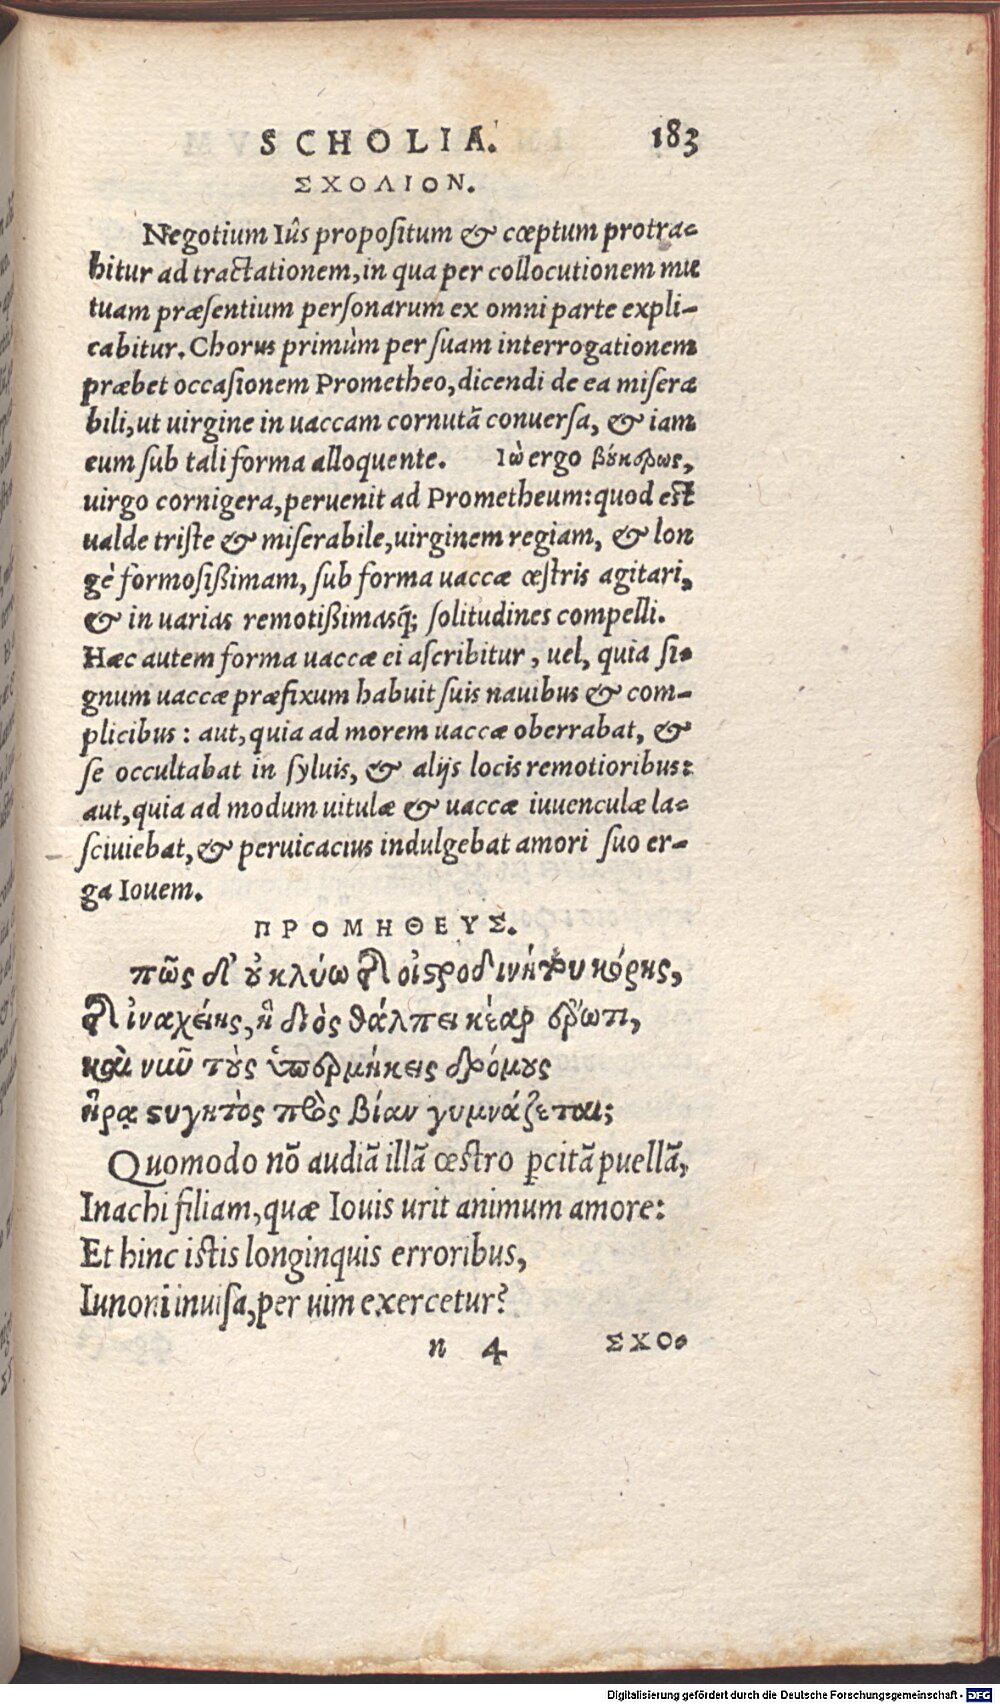 SCHOLIA. 183
ΣΧΟΛΙΟΝ.
Negotium Iûs propoſitum & cœptum protra-
hitur ad tractationem, in qua per collocutionem mu
tuam præſentium perſonarum ex omni parte expli-
cabitur. Chorus primùm per ſuam interrogationem
præbet occaſionem Prometheo, dicendi de ea miſera
bili, ut uirgine in uaccam cornutã conuerſa, & iam
cum ſub tali forma alloquente. Ιὼ ergo βύκερως,
uirgo cornigera, peruenit ad Prometheum: quod est
ualde triste & miſerabile, uirginem regiam, & lon
gè formoſißimam, ſub forma uaccæ œſtris agitari,
& in uarias remotißimasq́; ſolitudines compelli.
Hæc autem forma uaccæ ei aſcribitur, uel, quia ſi-
gnum uaccæ præfixum habuit ſuis nauibus & com-
plicibus: aut, quia ad morem uaccæ oberrabat, &
ſe occultabat in ſyluis, & alijs locis remotioribus:
aut, quia ad modum uitulæ & uaccæ iuuenculæ la-
ſciuiebat, & peruicacius indulgebat amori ſuo er-
ga Iouem.
ΠΡΟΜΗΘΕΥΣ.
πῶς δ' οὐ κλύω τῆς οἰστροδινήτου κόρης,
τῆς ἰναχείης, ἣ διὸς θάλπει κέαρ ἔρωτι,
καὶ νῦν τοὺς ὑπερμήκεις δρόμους
ἥρᾳ στυγητὸς πρὸς βίαν γυμνάζεται;
Quomodo nõ audiã illã œstro ꝑcitã puellã,
Inachi filiam, quæ Iouis urit animum amore:
Et hinc istis longinquis erroribus,
Iunoni inuiſa, per uim exercetur?
n 4 ΣΧΟ-
Digitalisierung gefördert durch die Deutsche Forschungsgemeinschaft - DFG